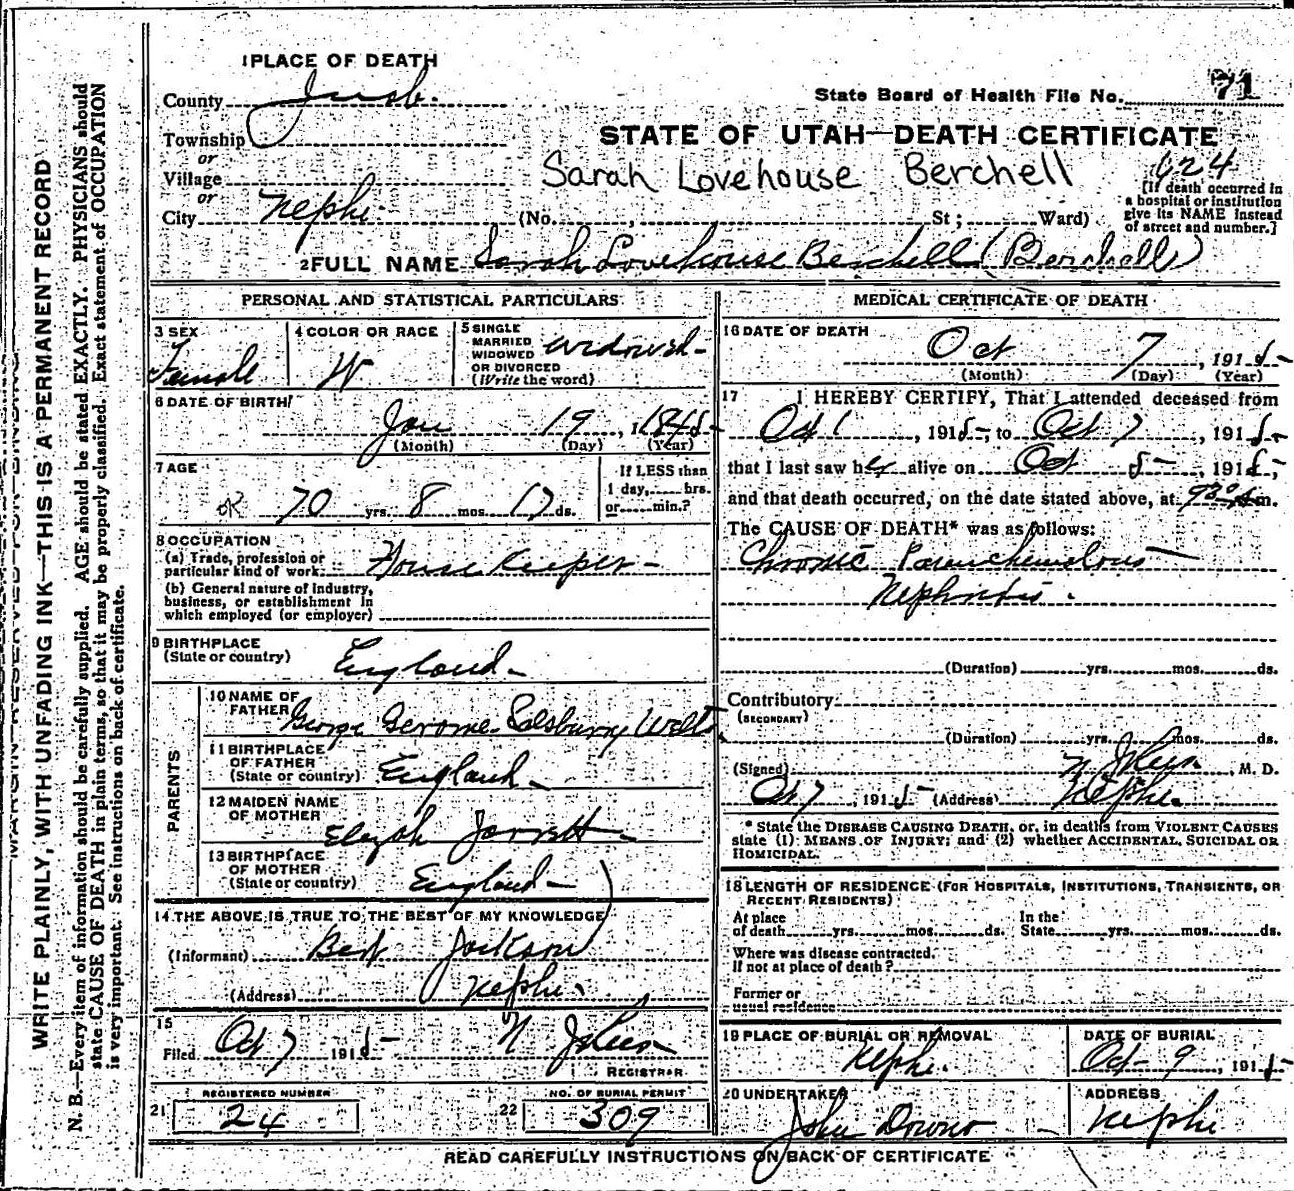 1 PLACE OF DEATH
County Juab.
State Board of Health File No. 71
Township
or
Village
or
City Nephi (No. , St; Ward)
STATE OF UTAH—DEATH CERTIFICATE
Sarah Lovehouse Berchell
624
[If death occurred in
a hospital or institution
give its NAME instead
of street and number.]
2 FULL NAME Sarah Lovehouse Berchell (Berchell)
PERSONAL AND STATISTICAL PARTICULARS
3 SEX
Female
4 COLOR OR RACE
W
5 SINGLE
MARRIED
WIDOWED
OR DIVORCED
(Write the word)
widowed
6 DATE OF BIRTH
Jan 19, 1845
(Month) (Day) (Year)
7 AGE
OK 70 yrs. 8 mos. 17 ds.
If LESS than
1 day, hrs.
or min.?
8 OCCUPATION
(a) Trade, profession or
particular kind of work House Keeper
(b) General nature of industry,
business, or establishment in
which employed (or employer)
9 BIRTHPLACE
(State or country) England
PARENTS
10 NAME OF
FATHER George Gerome Salsburry Wells
11 BIRTHPLACE
OF FATHER
(State or country) England
12 MAIDEN NAME
OF MOTHER Jarrett
13 BIRTHPLACE
OF MOTHER
(State or country) England
14 THE ABOVE IS TRUE TO THE BEST OF MY KNOWLEDGE
(Informant) Jackson
(Address) Nephi
15
Filed Oct 7 1915
REGISTRAR
REGISTERED NUMBER
21 24
NO. OF BURIAL PERMIT
22 309
MEDICAL CERTIFICATE OF DEATH
16 DATE OF DEATH
Oct 7, 1915
(Month) (Day) (Year)
17 I HEREBY CERTIFY, That I attended deceased from
Oct 1, 1915, to Oct 7, 1915,
that I last saw her alive on Oct 5, 1915,
and that death occurred, on the date stated above, at 930 m.
The CAUSE OF DEATH* was as follows:
Chronic Parenchemalous
Nephritis.
(Duration) yrs. mos. ds.
Contributory
(SECONDARY)
(Duration) yrs. mos. ds.
(Signed) , M. D.
Oct 7, 1915 (Address) Nephi.
* State the DISEASE CAUSING DEATH, or, in deaths from VIOLENT CAUSES
state (1) MEANS OF INJURY; and (2) whether ACCIDENTAL, SUICIDAL OR
HOMICIDAL.
18 LENGTH OF RESIDENCE (FOR HOSPITALS, INSTITUTIONS, TRANSIENTS, OR
RECENT RESIDENTS)
At place
of death yrs. mos. ds.
In the
State yrs. mos. ds.
Where was disease contracted,
If not at place of death?
Former or
usual residence
19 PLACE OF BURIAL OR REMOVAL
Nephi.
DATE OF BURIAL
Oct 9, 1915
20 UNDERTAKER
John
ADDRESS
Nephi
READ CAREFULLY INSTRUCTIONS ON BACK OF CERTIFICATE
MARGIN RESERVED FOR BINDING
WRITE PLAINLY, WITH UNFADING INK—THIS IS A PERMANENT RECORD
N. B.—Every item of information should be carefully supplied. AGE should be stated EXACTLY. PHYSICIANS should
state CAUSE OF DEATH in plain terms, so that it may be properly classified. Exact statement of OCCUPATION
is very important. See instructions on back of certificate.